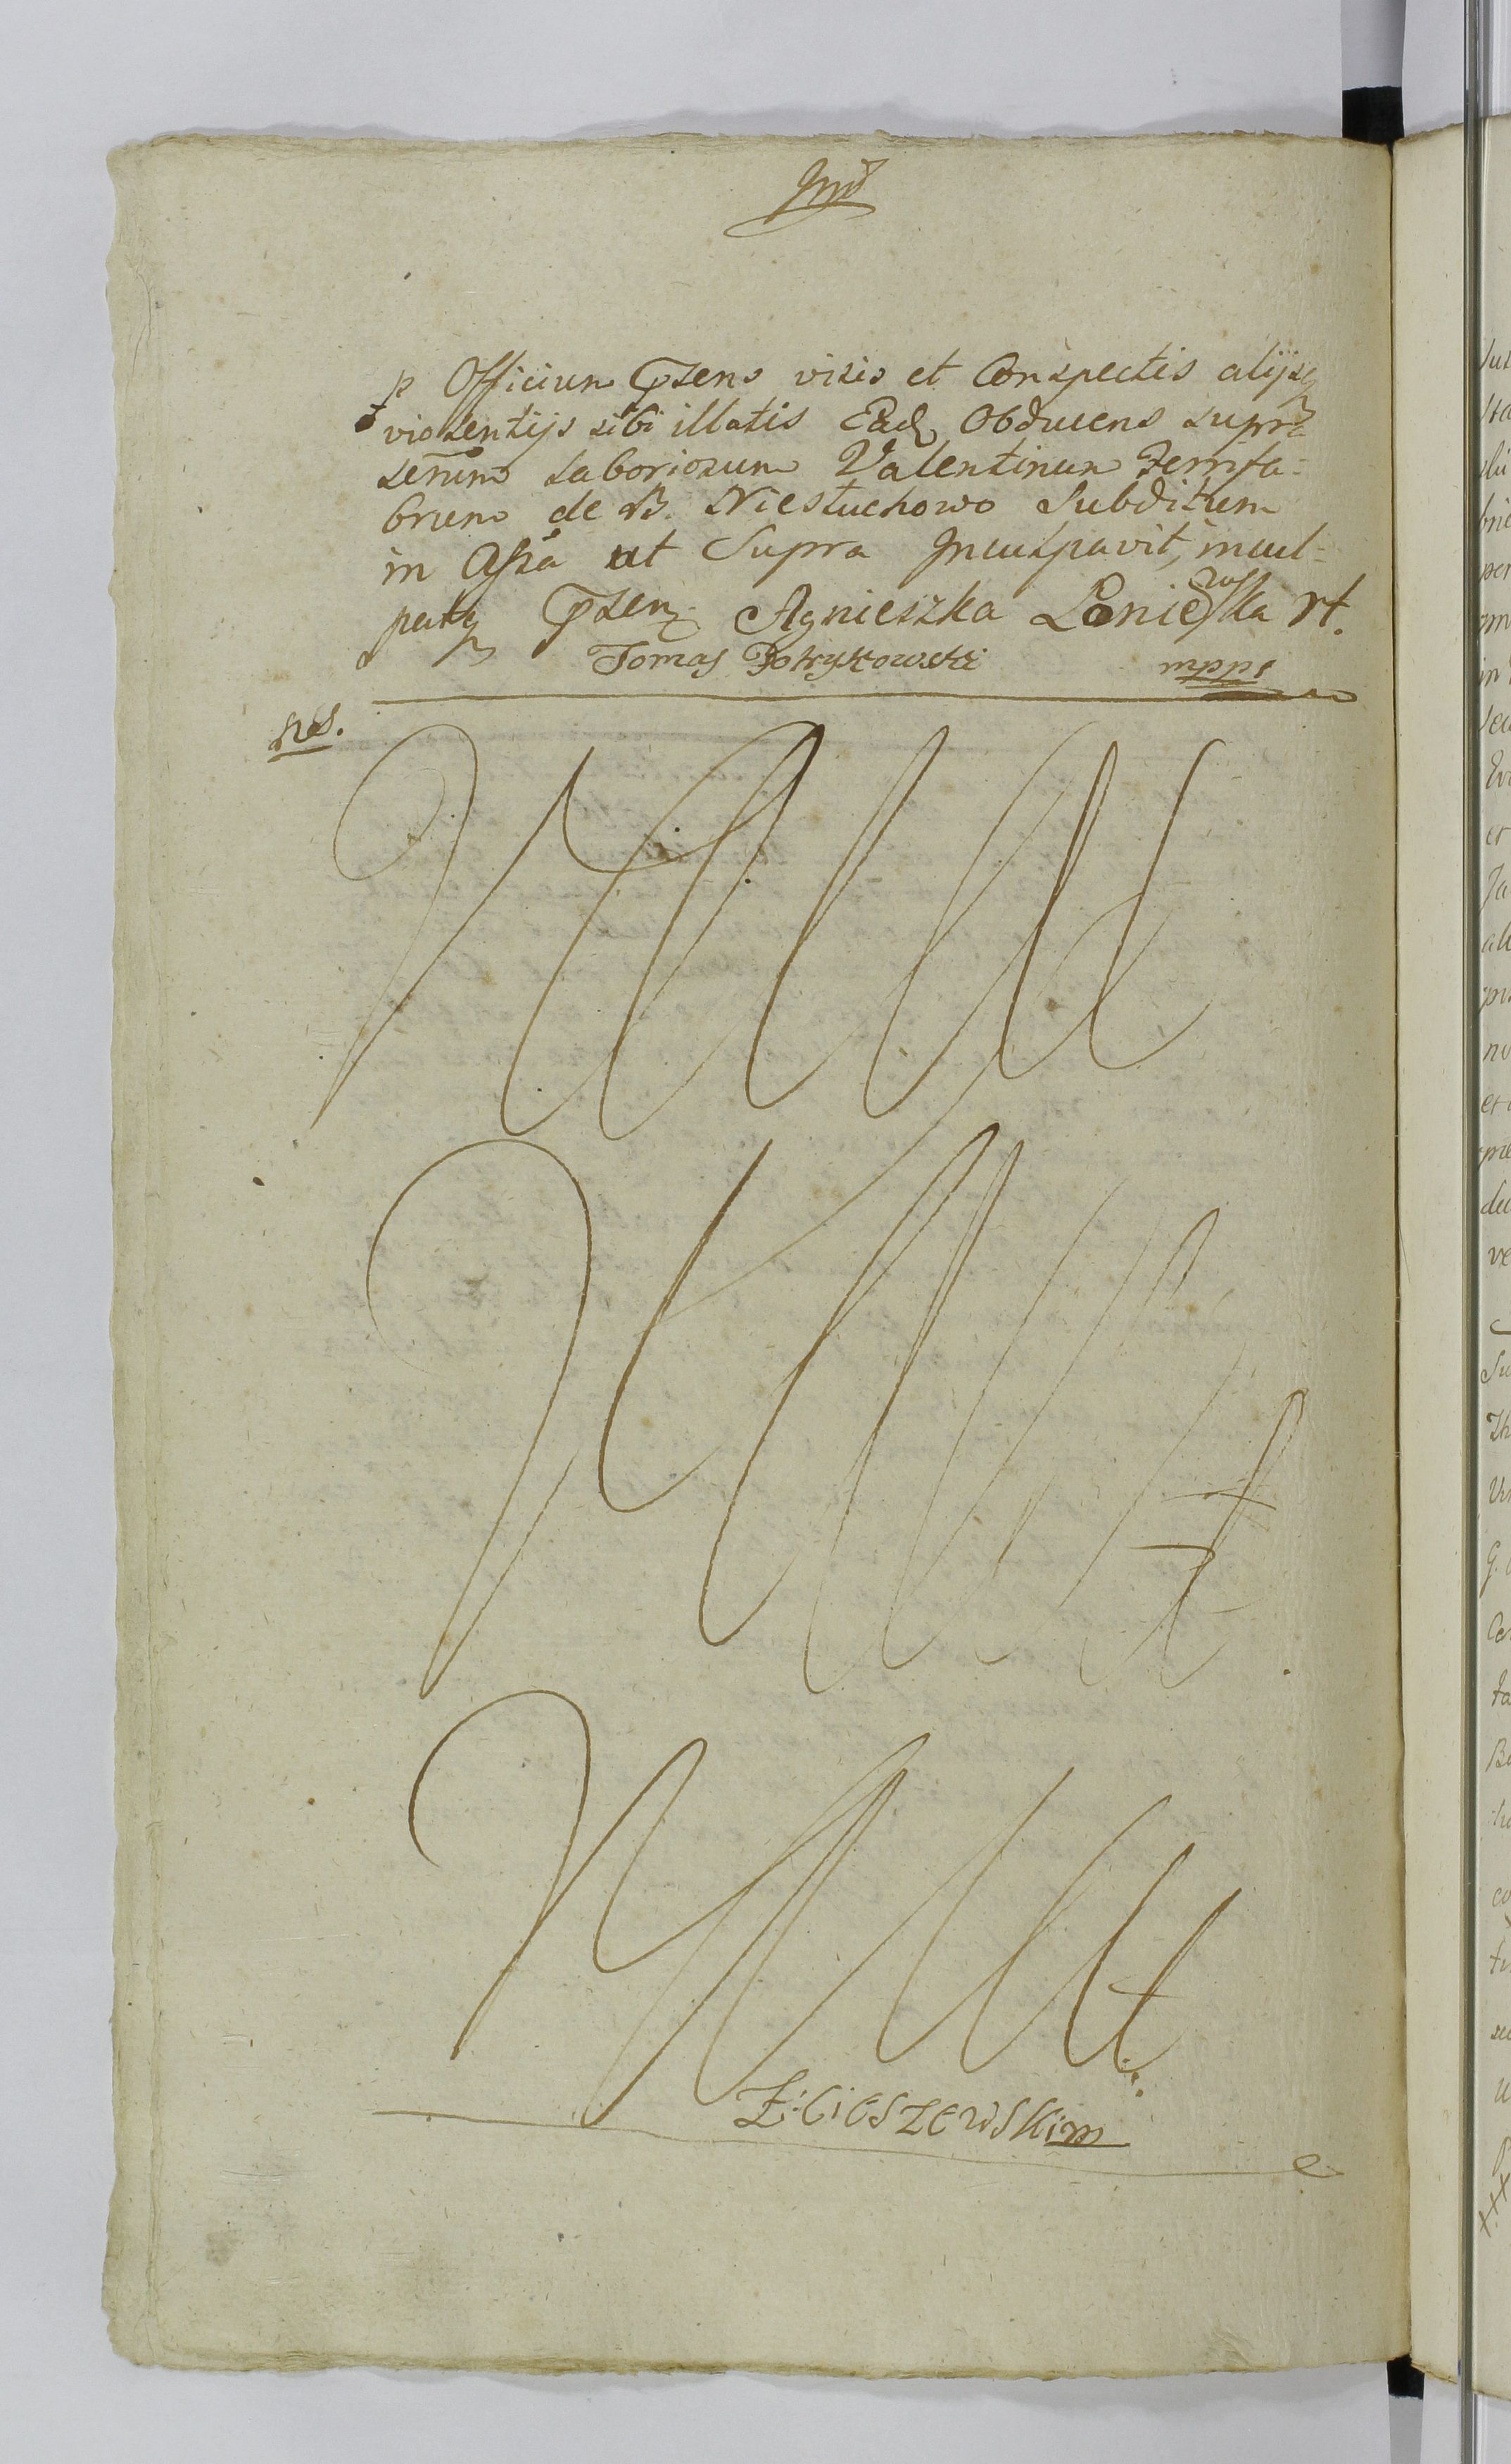 p Officium Psens visis et Conspectis alijsq
violentijs sibi illatis Ead Obducens supra
senum laboriosum Valentinum Ferrifa=
brum de B. Niestuchowo Subditum
in Assa ut Supra Inculpavit, incul=
patq Psen. Agnieszka Loniewska rt.
Tomas Pokrykowski mpps
Z: Cieszewskim